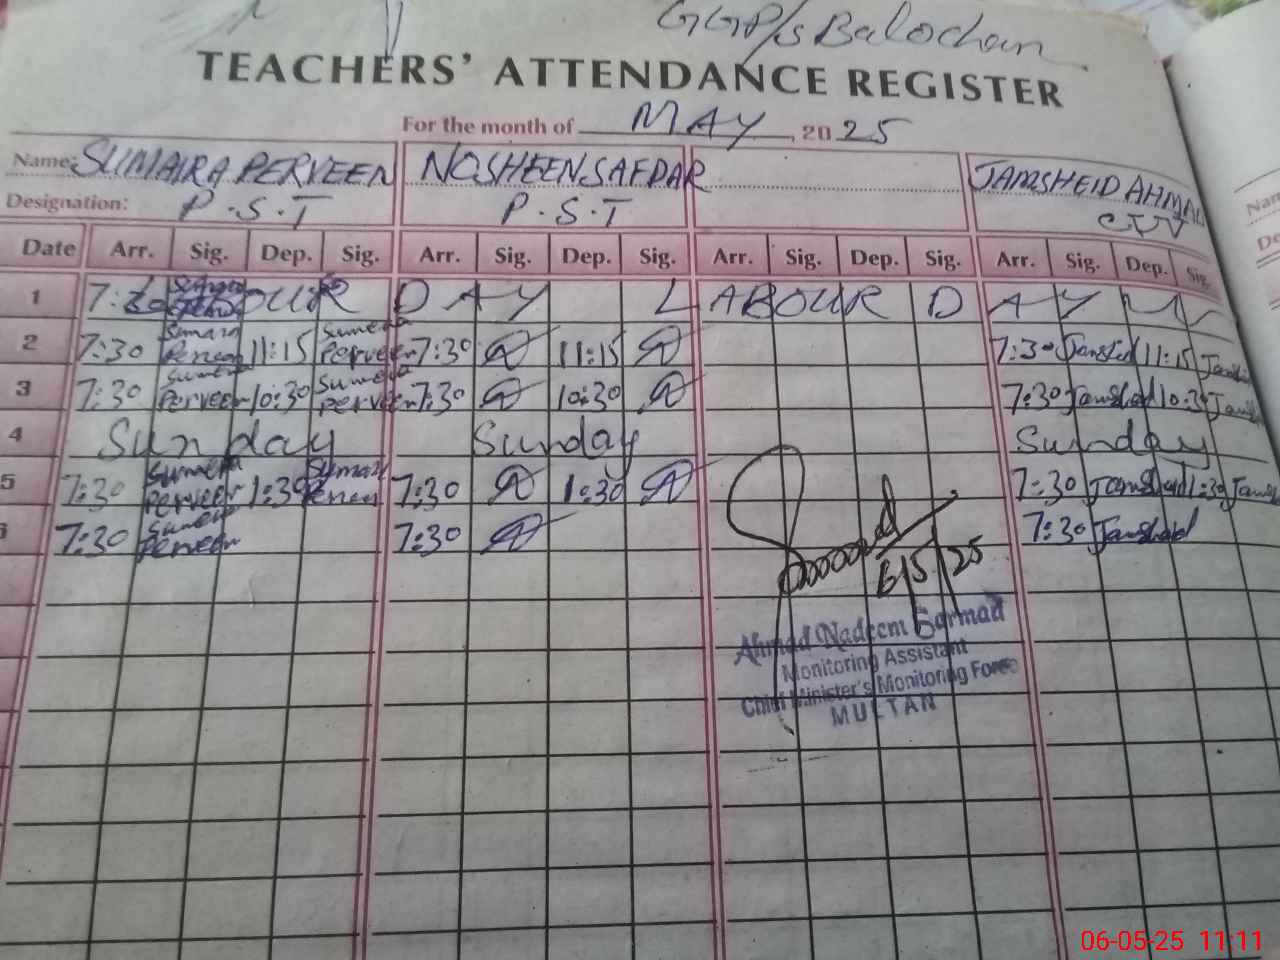 GGP/s Balochan
TEACHERS' ATTENDANCE REGISTER
For the month of MAY, 2025
Name: SUMAIRA PERVEEN NOSHEEN SAFDAR JAMSHEID AHMAD
Designation: P.S.T P.S.T
Date Arr. Sig. Dep. Sig. Arr. Sig. Dep. Sig. Arr. Sig. Dep. Sig. Arr. Sig. Dep. Sig.
1 LABOUR DAY LABOUR DAY
2 7:30 Sumaira Perveen 11:15 Sumera Perveen 7:30 11:15 7:30 Jamshed 11:15
3 7:30 Sumera Perveen 10:30 Sumera Perveen 7:30 10:30 7:30 Jamshed 10:30
4 Sunday Sunday Sunday
5 7:30 Sumera Perveen 1:30 7:30 1:30 7:30 Jamshed 1:30
6 7:30 Sumera Perveen 7:30 7:30 Jamshed
6/5/25
Ahmad Nadeem Sarmad
Monitoring Assistant
Chief Minister's Monitoring Force
MULTAN
06-05-25 11:11